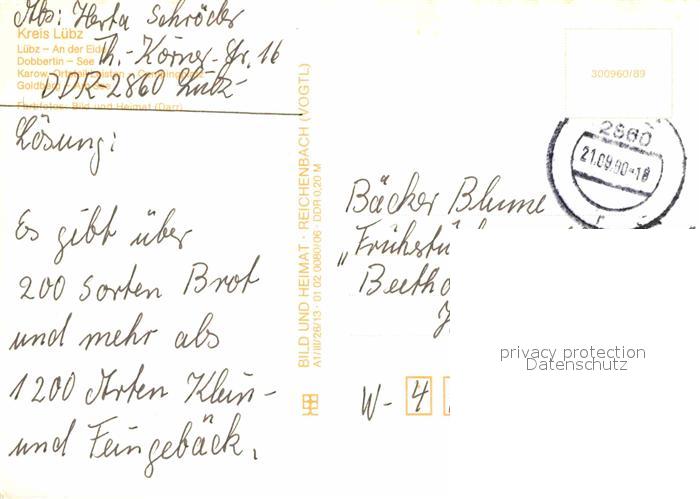 Abs: Herta Schröder
Kreis Lübz
Lübz – An der Elde
Th.-Körner-Str. 16
Dobbertin – See
Karow
Goldberg
DDR-2860 Lübz
Farbfotos: Bild und Heimat (Darr)
Lösung:
Es gibt über
200 Sorten Brot
und mehr als
1200 Arten Klein-
und Feingebäck.
BILD UND HEIMAT · REICHENBACH (VOGTL)
A1/III/26/13 · 01 02 0080/06 · DDR 0,20 M
300960/89
2860
21.09.90-18
Bäcker Blume
„Frühstü
Beetho
W- 4
privacy protection
Datenschutz